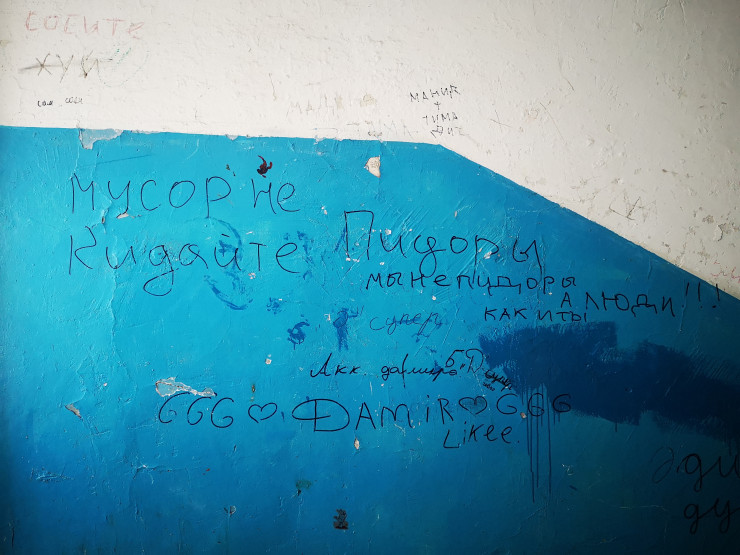 СОСИТЕ
ХУЙ
МАНИК
+
ТИМА
МУСОР НЕ
Кидайте Пидоры
МЫ НЕ ПИДОРЫ
А ЛЮДИ!!!
КАК И ТЫ
супер
Акк дамира
GGG♡, DAMiR♡GGG
Likee
Әди
ду